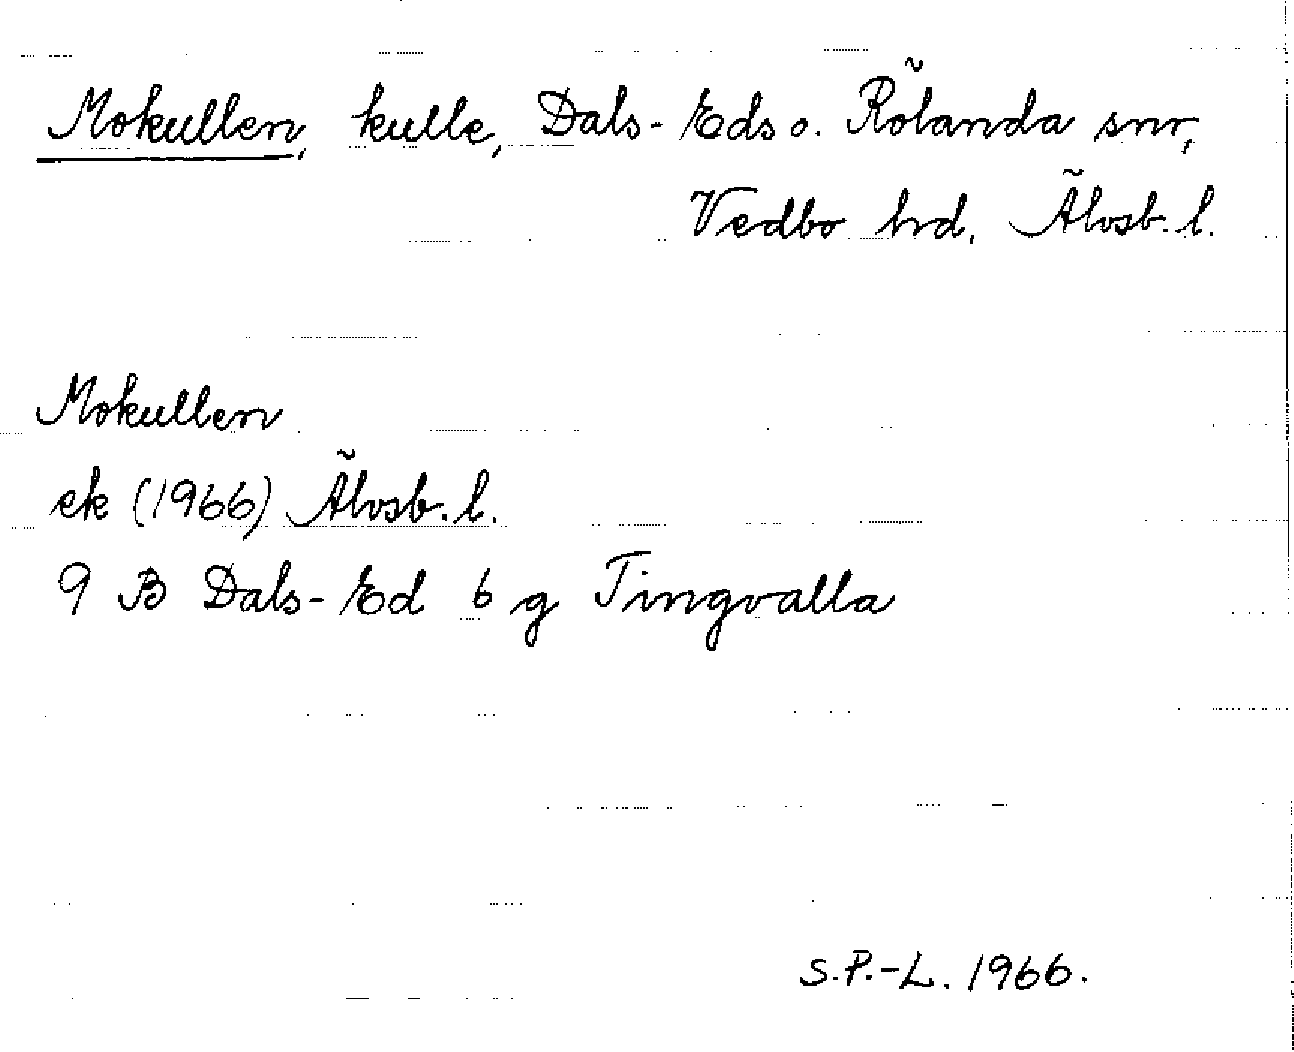 Mokullen, kulle, Dals-Eds o. Rölanda snr,
Vedbo hd, Älvsb. l.
Mokullen
ek (1966) Älvsb. l.
9 B Dals-Ed 6 g Tingvalla
S.P.-L. 1966.